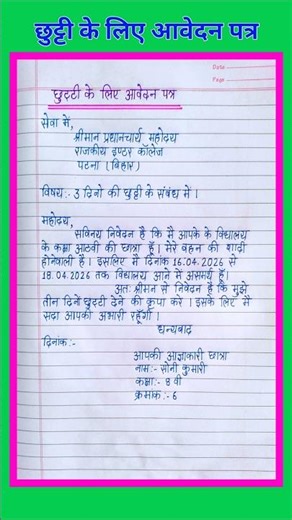 छुट्टी के लिए आवेदन पत्र
Date
Page
छुट्टी के लिए आवेदन पत्र
सेवा में,
श्रीमान प्रधानचार्य महोदय
राजकीय इण्टर कॉलेज
पटना (बिहार)
विषय:- 3 दिनो की छुट्टी के संबंध में।
महोदय,
सविनय निवेदन है कि मै आपके के विद्यालय
के कक्षा आठवी की छात्रा हूँ। मेरे बहन की शादी
होनेवाली है। इसलिए मै दिनांक 16.04.2026 से
18.04.2026 तक विद्यालय आने में असमर्थ हूँ।
अतः श्रीमन से निवेदन है कि मुझे
तीन दिनो छुट्टी देने की कृपा करे। इसके लिए मै
सदा आपकी अभारी रहूँगी।
धन्यवाद
दिनांक:-
आपकी आज्ञाकारी छात्रा
नाम:- सोनी कुमारी
कक्षा:- 8 वी
क्रमांक:- 6